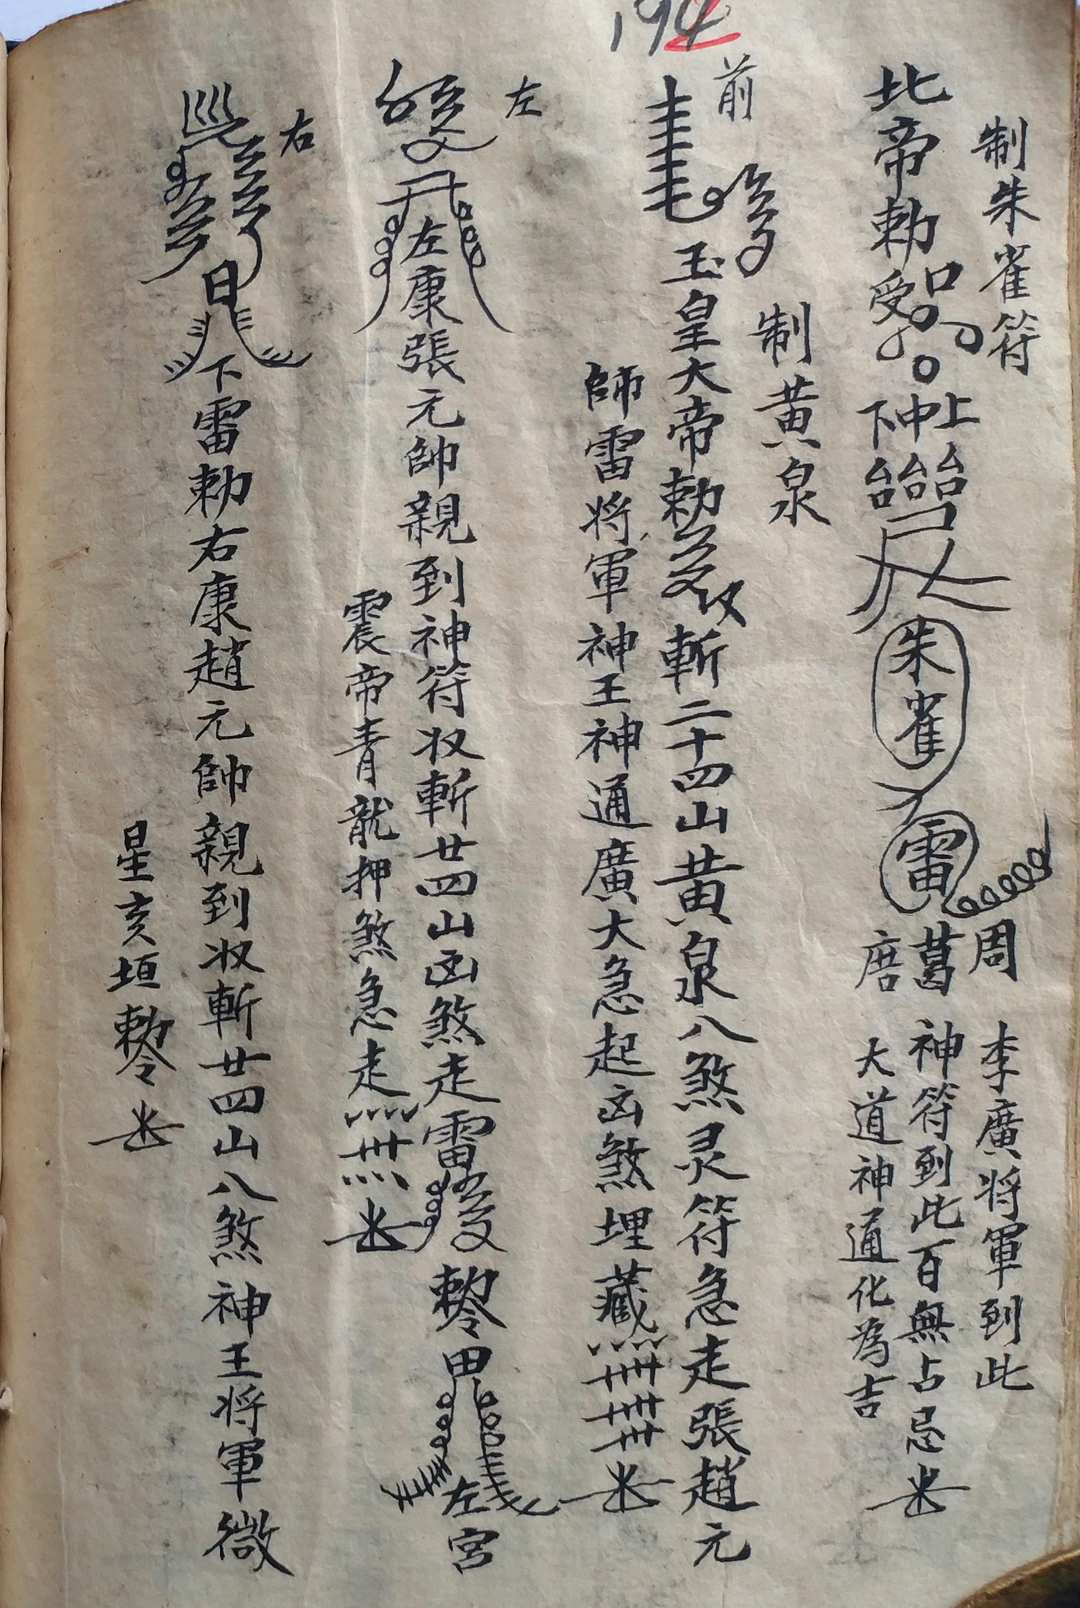 194
制朱雀符
北帝勅受
上台
中台
下台
朱雀
雷
周
葛
唐
李廣将軍到此
神符到此百無占忌
大道神通化為吉
制黄泉
前
玉皇大帝勅
斬二十四山黄泉八煞灵符急走張趙元
師雷将軍神王神通廣大急起凶煞埋藏
左
左康張元帥親到神符收斬廿四山凶煞走雷
勅令
左宮
震帝青龍押煞急走
右
日
下雷勅右康趙元帥親到收斬廿四山八煞神王将軍微
星亥垣勅令